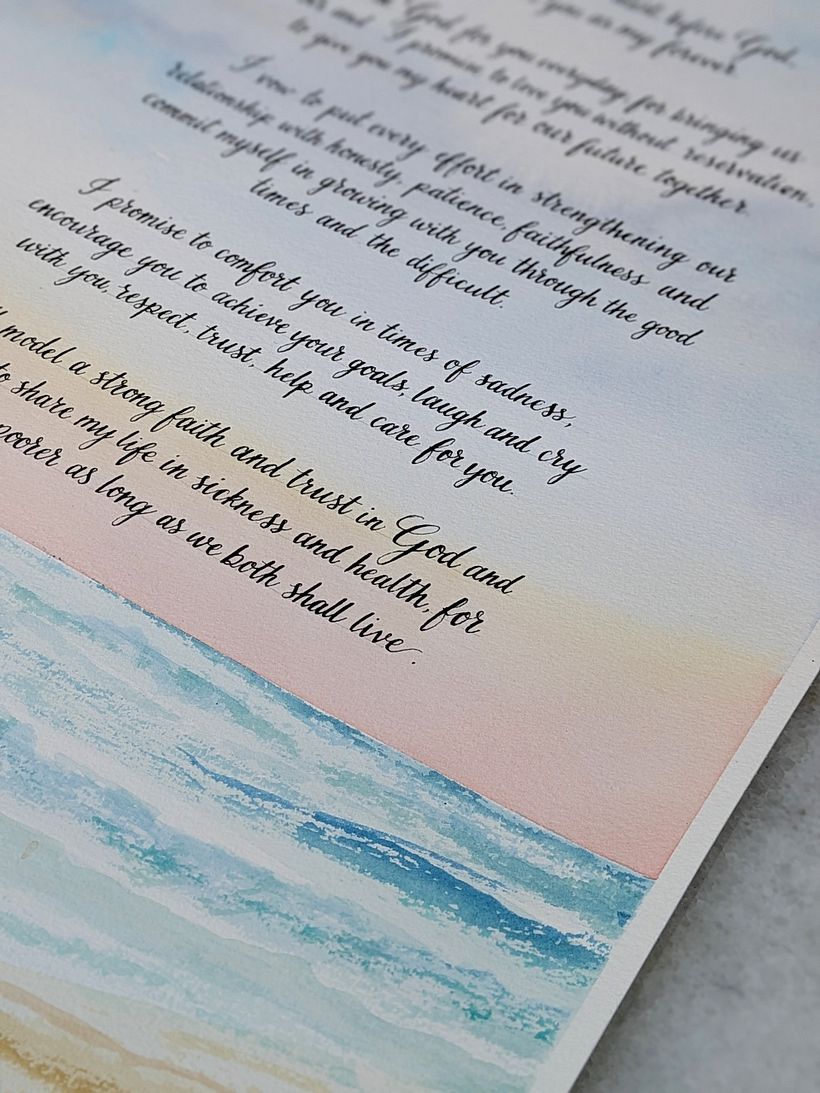 before God,
you as my forever.
God for you everyday for bringing us
and I promise to love you without reservation,
to give you my heart for our future together.
I vow to put every effort in strengthening our
relationship with honesty, patience, faithfulness and
commit myself in growing with you through the good
times and the difficult.
I promise to comfort you in times of sadness,
encourage you to achieve your goals, laugh and cry
with you, respect, trust, help and care for you.
model a strong faith and trust in God and
to share my life in sickness and health, for
poorer as long as we both shall live.